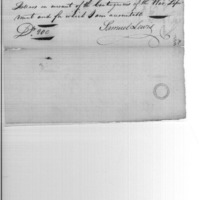 Dollars on account of the Contingencies of the War Depart
ment and for which I am accountable
Ds 200
Samuel Lewis